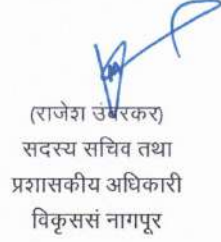 (राजेश उंबरकर)
सदस्य सचिव तथा
प्रशासकीय अधिकारी
विकृससं नागपूर